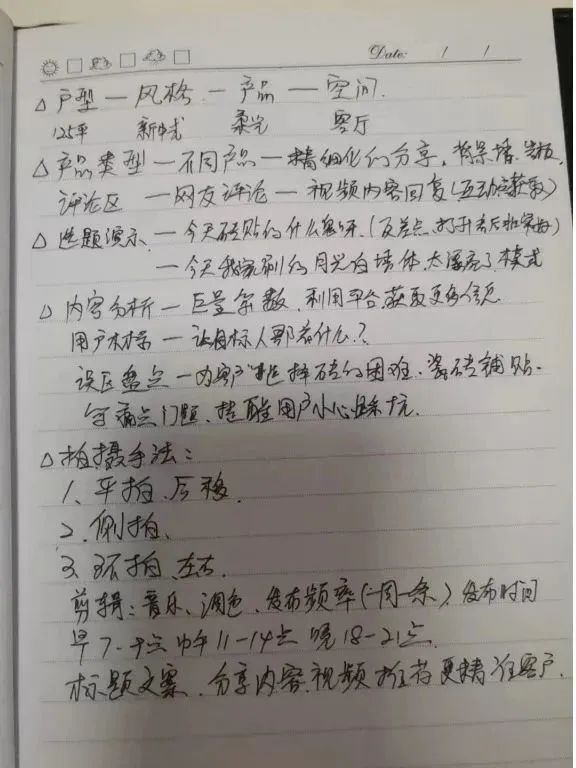 Date: / /
△户型—风格—产品—空间.
125平 新中式 柔光 客厅
△产品类型—不同产品—精细化的分享,背景墙.岩板,
评论区—网友评论—视频内容回复(互动后获取)
△选题演示.—今天砖贴的什么(反差点
—今天我家刷的月光白墙体太漂亮了.模式
△内容分析—巨量算数,利用平台获取更多信息
用户—让目标人群看什么?
误区盘点—为客户选择砖的困难.瓷砖铺贴.
等痛点门题、提醒用户小心踩坑.
△拍摄手法:
1、平拍.后移.
2.侧拍、
3、环拍、左右.
剪辑:音乐、调色、发布频率(一周一条)发布时间
早7-9点中午11-14点晚18-21点.
标题文案.分享内容.视频推荐更精准客户.